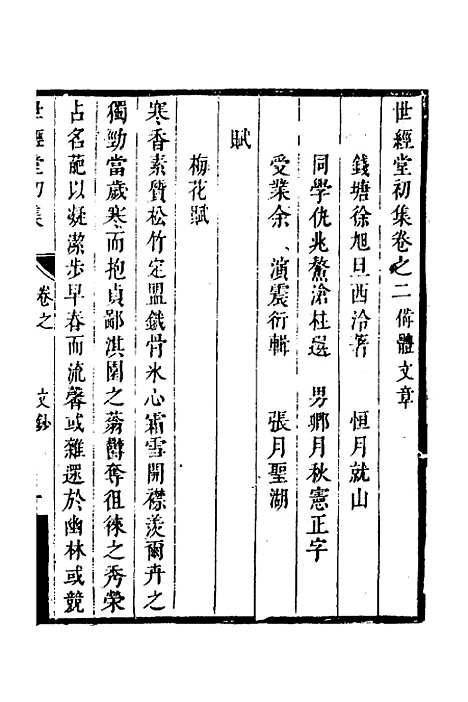 世經堂初集卷之二備體文章
錢塘徐旭旦西泠著　恒月就山
同學仇兆鰲滄柱選　男卿月秋憲正字
受業余　演震衍輯　張月聖湖
賦
梅花賦
寒香素質松竹定盟鐵骨氷心霜雪開襟羨爾卉之
獨勁當歲寒而抱貞鄙淇園之蓊欝奪徂徠之秀榮
占名葩以凝潔步早春而流馨或雜遝於幽林或競
世經堂初集　卷之　文鈔